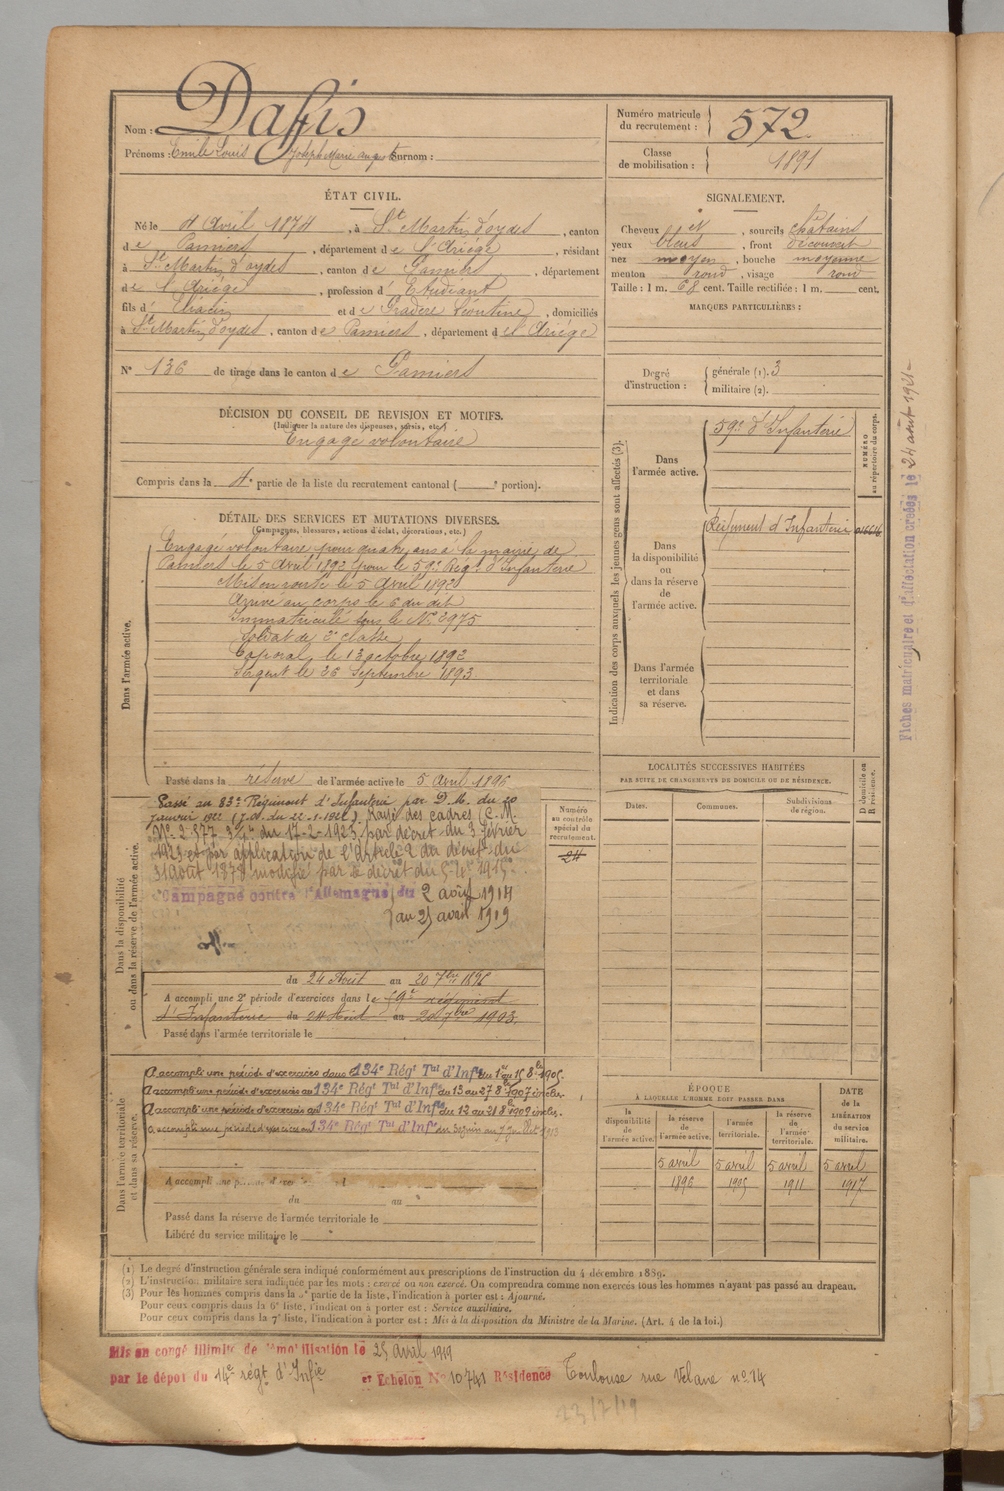 Nom : Daffis
Prénoms : Emile Louis Joseph Marie August Surnom :
Numéro matricule du recrutement : 572
Classe de mobilisation : 1891
ÉTAT CIVIL.
Né le 4 Avril 1874, à St Martin d'oydes, canton
de Pamiers, département de l'Ariége, résidant
à St Martin d'oydes, canton de Pamiers, département
de l'Ariége, profession d'Etudiant
fils d et de Gradère Léontine, domiciliés
à St Martin d'oydes, canton de Pamiers, département de l'Ariége
N° 136 de tirage dans le canton de Pamiers
SIGNALEMENT.
Cheveux et, sourcils châtains
yeux bleus, front découvert
nez moyen, bouche moyenne
menton rond, visage rond
Taille : 1 m. 68 cent. Taille rectifiée : 1 m. cent.
MARQUES PARTICULIÈRES :
Degré d'instruction : générale (1). 3
militaire (2).
DÉCISION DU CONSEIL DE REVISION ET MOTIFS.
(Indiquer la nature des dispenses, sursis, etc.)
Engagé volontaire
Compris dans la 4e partie de la liste du recrutement cantonal ( e portion).
DÉTAIL DES SERVICES ET MUTATIONS DIVERSES.
(Campagnes, blessures, actions d'éclat, décorations, etc.)
Dans l'armée active.
Engagé volontaire pour quatre ans à la mairie de
Pamiers le 5 Avril 1892 pour le 59e Régt d'Infanterie
Mis en route le 5 Avril 1892
Arrivé au corps le 6 du dit
Immatriculé sous le N° 2975
Soldat de 2e classe
Caporal le 13 octobre 1892
Sergent le 26 Septembre 1893
Passé dans la réserve de l'armée active le 5 Avril 1896
Indication des corps auxquels les jeunes gens sont affectés (3).
Dans l'armée active.
59e d'Infanterie
NUMÉRO au répertoire du corps.
Dans la disponibilité ou dans la réserve de l'armée active.
Régiment d'Infanterie
Dans l'armée territoriale et dans sa réserve.
Fiches matriculaire et d'affectation créées le 24 août 1921
LOCALITÉS SUCCESSIVES HABITÉES
PAR SUITE DE CHANGEMENTS DE DOMICILE OU DE RÉSIDENCE.
Dates. Communes. Subdivisions de région. D domicile ou R résidence.
Dans la disponibilité ou dans la réserve de l'armée active.
Passé au 83e Régiment d'Infanterie par D. M. du 20
janvier 1922 (J.O. du 22-1-1922). Rayé des cadres (C.M.
N° 2977-3/4 du 17-2-1923, par décret du 3 février
1923 et par application de l'article 2 du décret du
31 août 1878 modifié par le décret du
Campagne contre l'Allemagne du 2 août 1914
au 25 avril 1919
Numéro au contrôle spécial du recrutement.
24
du 24 Août au 20 7bre 1898
A accompli une 2e période d'exercices dans le 59e régiment
d'Infanterie du 24 Août au 20 7bre 1903.
Passé dans l'armée territoriale le
Dans l'armée territoriale et dans sa réserve.
A accompli une période d'exercices dans le 134e Régt Tal d'Infie du 1er au 15 8bre 1905.
A accompli une période d'exercices au 134e Régt Tal d'Infie du 13 au 27 8bre 1907 inclus.
A accompli une période d'exercices au 134e Régt Tal d'Infie du 12 au 21 8bre 1909 inclus.
A accompli une période d'exercices au 134e Régt Tal d'Infie du 30 juin au Juillet 1913
A accompli une
du au
Passé dans la réserve de l'armée territoriale le
Libéré du service militaire le
ÉPOQUE
À LAQUELLE L'HOMME DOIT PASSER DANS
la disponibilité de l'armée active. la réserve de l'armée active. l'armée territoriale. la réserve de l'armée territoriale.
DATE de la LIBÉRATION du service militaire.
5 avril 5 avril 5 avril 5 avril
1896 1905 1911 1917
(1) Le degré d'instruction générale sera indiqué conformément aux prescriptions de l'instruction du 4 décembre 1889.
(2) L'instruction militaire sera indiquée par les mots : exercé ou non exercé. On comprendra comme non exercés tous les hommes n'ayant pas passé au drapeau.
(3) Pour les hommes compris dans la partie de la liste, l'indication à porter est : Ajourné.
Pour ceux compris dans la 6e liste, l'indication à porter est : Service auxiliaire.
Pour ceux compris dans la 7e liste, l'indication à porter est : Mis à la disposition du Ministre de la Marine. (Art. 4 de la loi.)
Mis en congé illimité de démobilisation le 25 avril 1919
par le dépôt du 14e régt d'Infie et Echelon N° 10741 Résidence Toulouse rue Velane n° 14
23/7/19